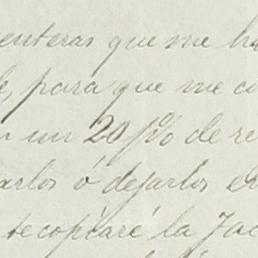 enteras que me ha
e, para que me co
n un 20 p% de re
arlos ó dejarlos en
recopiaré la Jac